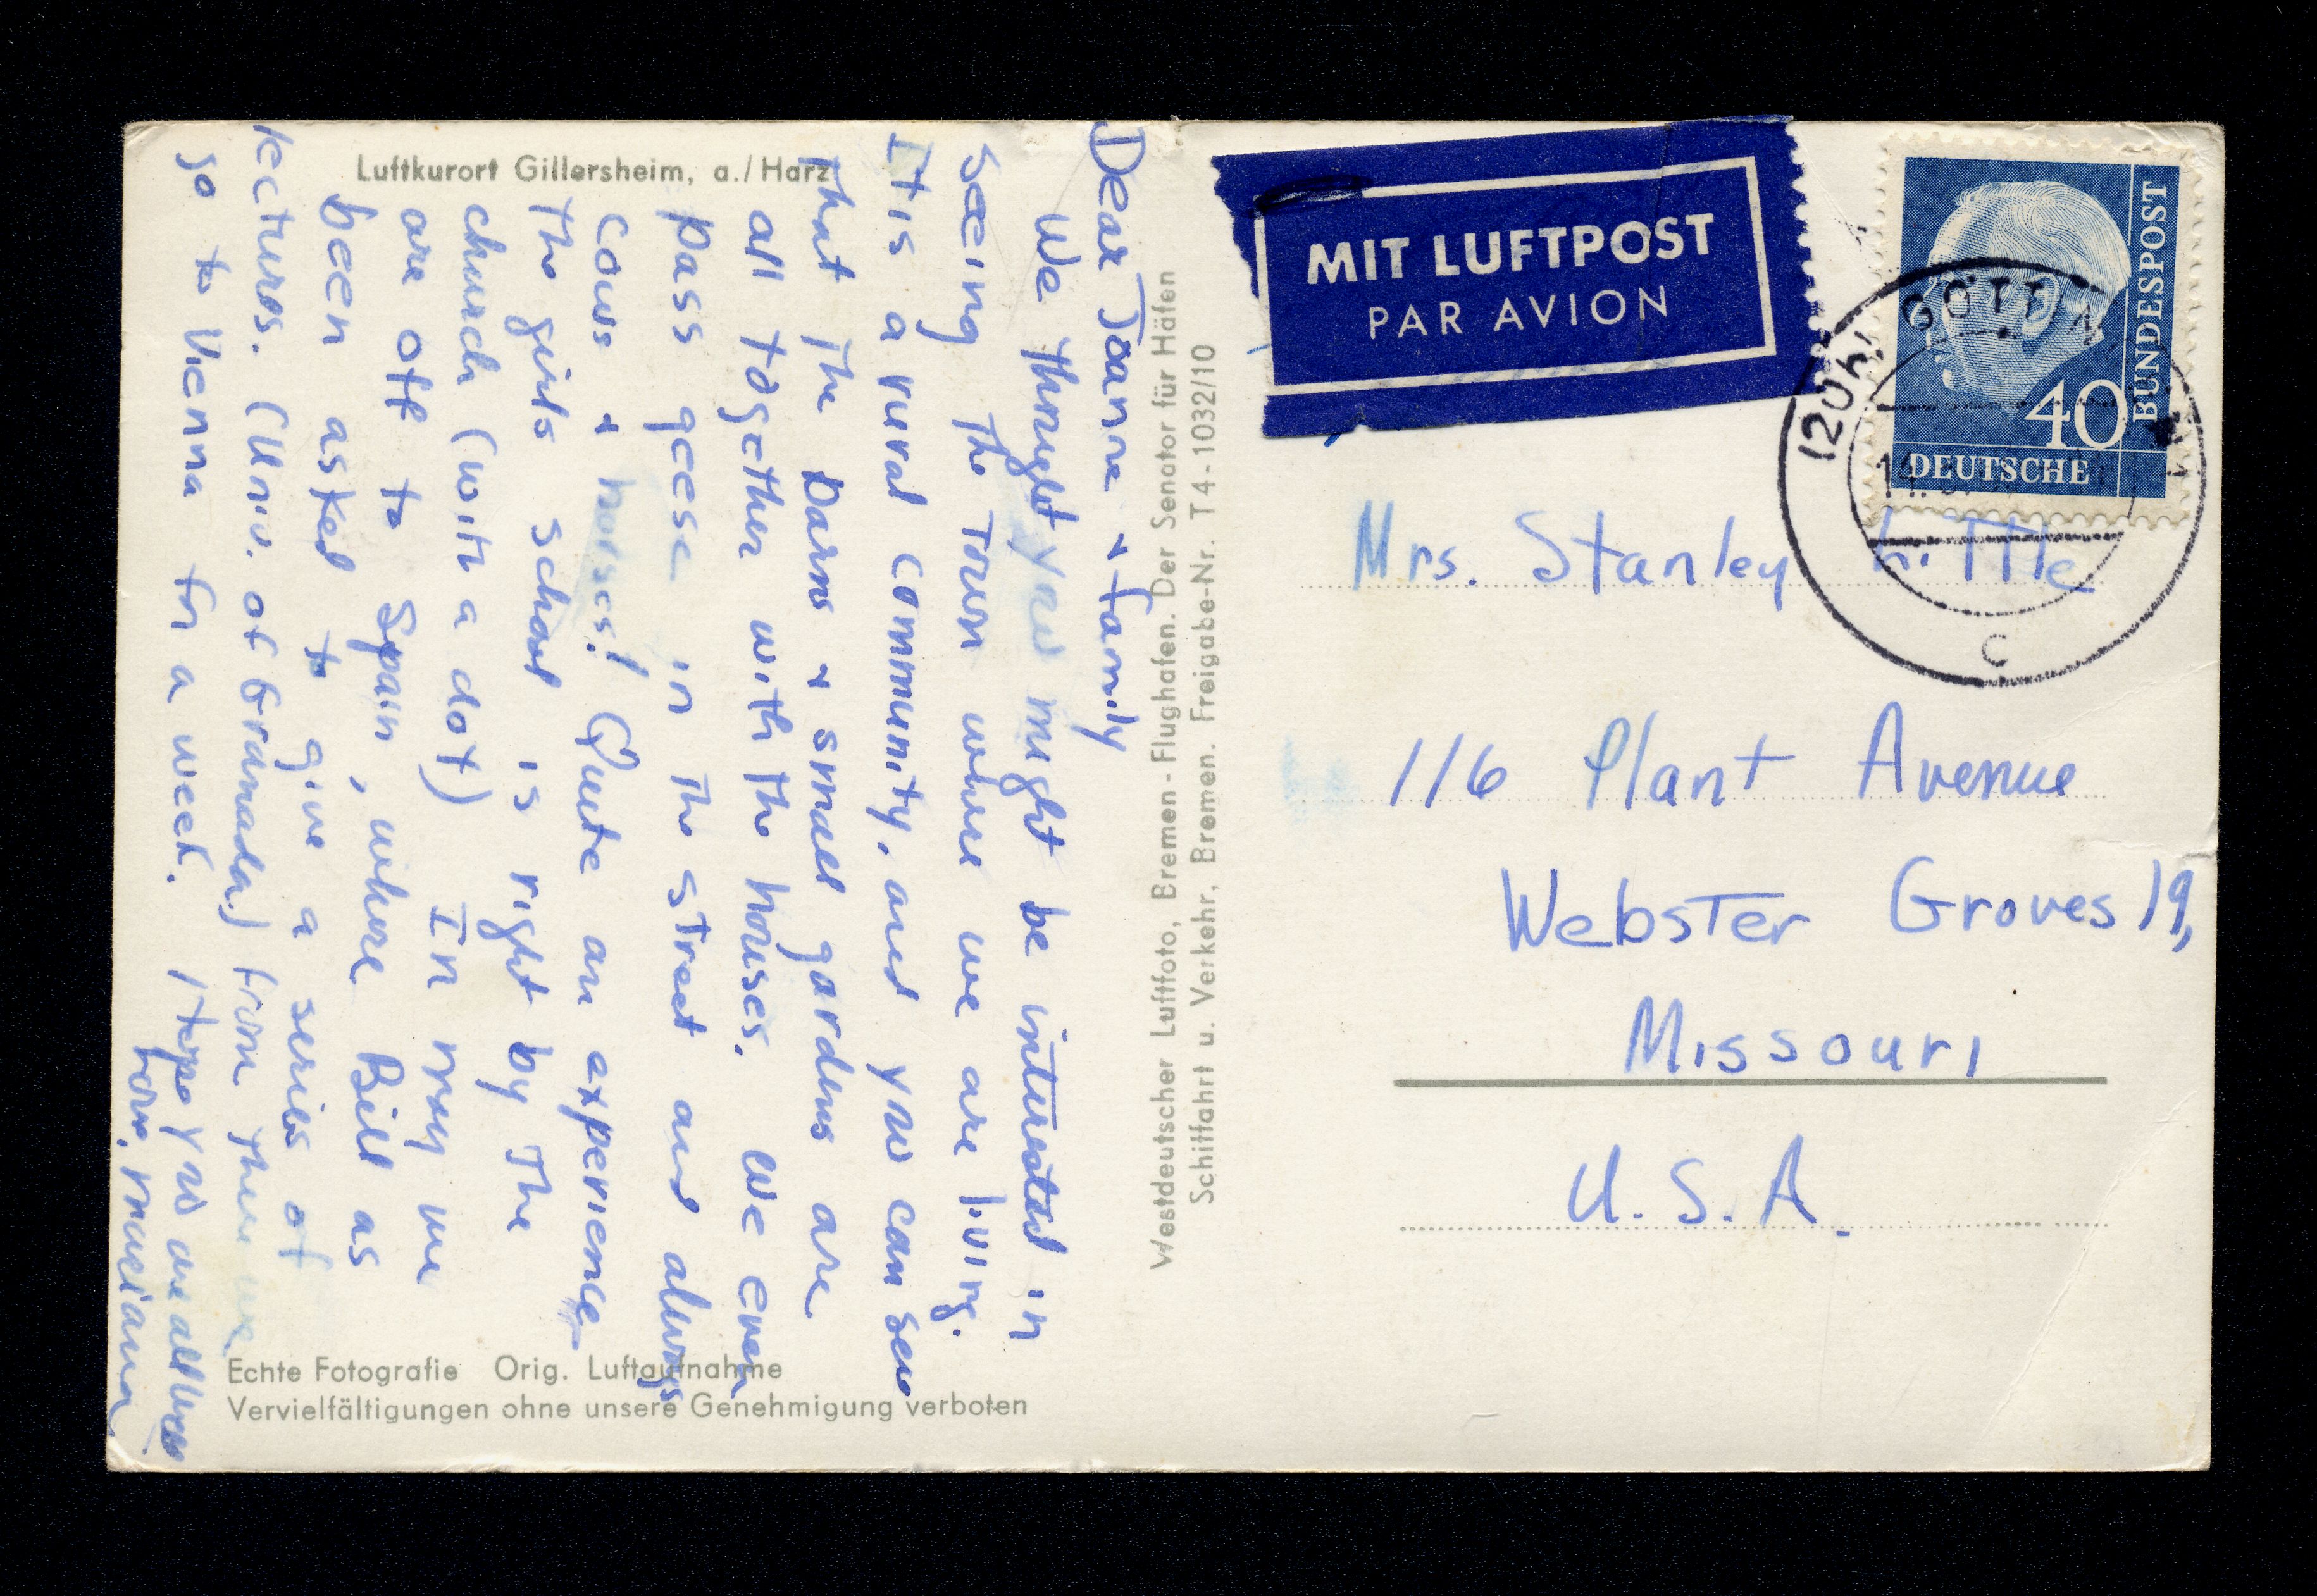 Luftkurort Gillersheim, a./Harz
Dear Joanne & family
We thought you might be interested in
seeing the town where we are living.
It is a rural community, and you can see
that the barns & small gardens are
all together with the houses. We even
pass geese in the street and always
cows & horses! Quite an experience.
The girls school is right by the
church (with a dot) In May we
are off to Spain, where Bill as
been asked to give a series of
lectures. (Univ. of Granada) from there we
go to Vienna for a week. Hope you are all well
Love,
Echte Fotografie Orig. Luftaufnahme
Vervielfältigungen ohne unsere Genehmigung verboten
Westdeutscher Luftfoto, Bremen - Flughafen. Der Senator für Häfen
Schiffahrt u. Verkehr, Bremen. Freigabe-Nr. T 4 - 1032/10
MIT LUFTPOST
PAR AVION
DEUTSCHE
BUNDESPOST
40
c
Mrs. Stanley Little
116 Plant Avenue
Webster Groves 19,
Missouri
U.S.A.